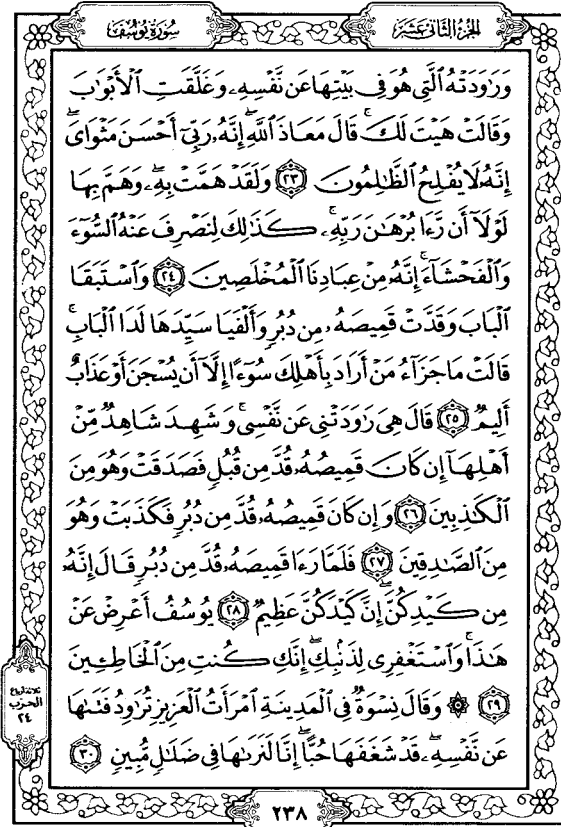 الجزء الثاني عشر
سورة يوسف
وَرَٰوَدَتْهُ ٱلَّتِى هُوَ فِى بَيْتِهَا عَن نَّفْسِهِۦ وَغَلَّقَتِ ٱلْأَبْوَٰبَ
وَقَالَتْ هَيْتَ لَكَ ۚ قَالَ مَعَاذَ ٱللَّهِ ۖ إِنَّهُۥ رَبِّىٓ أَحْسَنَ مَثْوَاىَ ۖ
إِنَّهُۥ لَا يُفْلِحُ ٱلظَّٰلِمُونَ ٢٣ وَلَقَدْ هَمَّتْ بِهِۦ ۖ وَهَمَّ بِهَا
لَوْلَآ أَن رَّءَا بُرْهَٰنَ رَبِّهِۦ ۚ كَذَٰلِكَ لِنَصْرِفَ عَنْهُ ٱلسُّوٓءَ
وَٱلْفَحْشَآءَ ۚ إِنَّهُۥ مِنْ عِبَادِنَا ٱلْمُخْلَصِينَ ٢٤ وَٱسْتَبَقَا
ٱلْبَابَ وَقَدَّتْ قَمِيصَهُۥ مِن دُبُرٍ وَأَلْفَيَا سَيِّدَهَا لَدَا ٱلْبَابِ ۚ
قَالَتْ مَا جَزَآءُ مَنْ أَرَادَ بِأَهْلِكَ سُوٓءًا إِلَّآ أَن يُسْجَنَ أَوْ عَذَابٌ
أَلِيمٌ ٢٥ قَالَ هِىَ رَٰوَدَتْنِى عَن نَّفْسِى ۚ وَشَهِدَ شَاهِدٌ مِّنْ
أَهْلِهَآ إِن كَانَ قَمِيصُهُۥ قُدَّ مِن قُبُلٍ فَصَدَقَتْ وَهُوَ مِنَ
ٱلْكَٰذِبِينَ ٢٦ وَإِن كَانَ قَمِيصُهُۥ قُدَّ مِن دُبُرٍ فَكَذَبَتْ وَهُوَ
مِنَ ٱلصَّٰدِقِينَ ٢٧ فَلَمَّا رَءَا قَمِيصَهُۥ قُدَّ مِن دُبُرٍ قَالَ إِنَّهُۥ
مِن كَيْدِكُنَّ ۖ إِنَّ كَيْدَكُنَّ عَظِيمٌ ٢٨ يُوسُفُ أَعْرِضْ عَنْ
هَٰذَا ۚ وَٱسْتَغْفِرِى لِذَنۢبِكِ ۖ إِنَّكِ كُنتِ مِنَ ٱلْخَاطِـِٔينَ
٢٩ ۞ وَقَالَ نِسْوَةٌ فِى ٱلْمَدِينَةِ ٱمْرَأَتُ ٱلْعَزِيزِ تُرَٰوِدُ فَتَىٰهَا
عَن نَّفْسِهِۦ ۖ قَدْ شَغَفَهَا حُبًّا ۖ إِنَّا لَنَرَىٰهَا فِى ضَلَٰلٍ مُّبِينٍ ٣٠
ثلاثة أرباع
الحزب
٢٤
٢٣٨